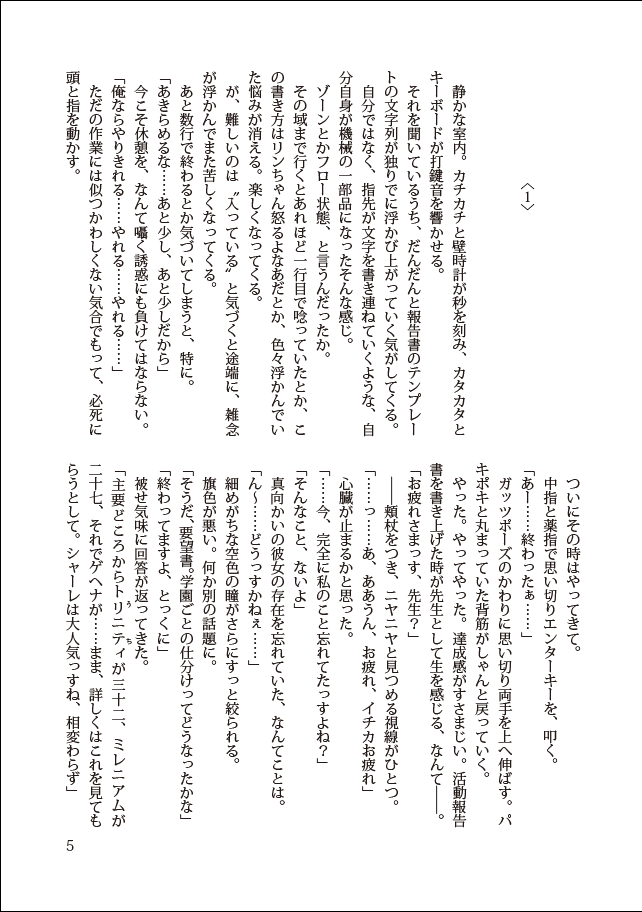 〈1〉
静かな室内。カチカチと壁時計が秒を刻み、カタカタと
キーボードが打鍵音を響かせる。
それを聞いているうち、だんだんと報告書のテンプレー
トの文字列が独りでに浮かび上がっていく気がしてくる。
自分ではなく、指先が文字を書き連ねていくような、自
分自身が機械の一部品になったそんな感じ。
ゾーンとかフロー状態、と言うんだったか。
その域まで行くとあれほど一行目で唸っていたとか、こ
の書き方はリンちゃん怒るよなあだとか、色々浮かんでい
た悩みが消える。楽しくなってくる。
が、難しいのは〝入っている〟と気づくと途端に、雑念
が浮かんでまた苦しくなってくる。
あと数行で終わるとか気づいてしまうと、特に。
「あきらめるな……あと少し、あと少しだから」
今こそ休憩を、なんて囁く誘惑にも負けてはならない。
「俺ならやりきれる……やれる……やれる……」
ただの作業には似つかわしくない気合でもって、必死に
頭と指を動かす。
ついにその時はやってきて。
中指と薬指で思い切りエンターキーを、叩く。
「あー……終わったぁ……」
ガッツポーズのかわりに思い切り両手を上へ伸ばす。パ
キポキと丸まっていた背筋がしゃんと戻っていく。
やった。やってやった。達成感がすさまじい。活動報告
書を書き上げた時が先生として生を感じる、なんて――。
「お疲れさまっす、先生?」
――頬杖をつき、ニヤニヤと見つめる視線がひとつ。
「……っ……あ、ああうん、お疲れ、イチカお疲れ」
心臓が止まるかと思った。
「……今、完全に私のこと忘れてたっすよね?」
「そんなこと、ないよ」
真向かいの彼女の存在を忘れていた、なんてことは。
「ん～……どうっすかねぇ……」
細めがちな空色の瞳がさらにすっと絞られる。
旗色が悪い。何か別の話題に。
「そうだ、要望書。学園ごとの仕分けってどうなったかな」
「終わってますよ、とっくに」
被せ気味に回答が返ってきた。
「主要どころからトリニティうちが三十二、ミレニアムが
二十七、それでゲヘナが……まま、詳しくはこれを見ても
らうとして。シャーレは大人気っすね、相変わらず」
5